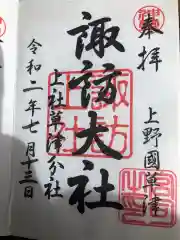 奉拝
上野國草津
諏訪大社
上社草津分社
令和二年七月十三日